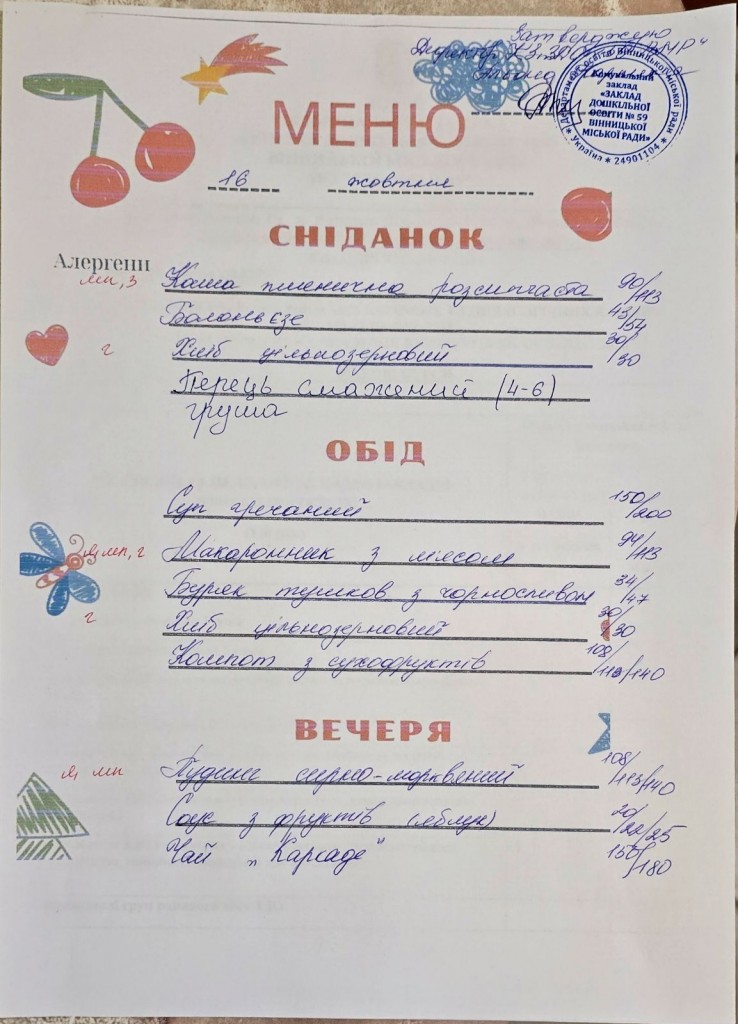 Затверджую
Директор КЗ "ЗДО №59 ВМР"
Департамент освіти Вінницької міської ради * Україна * 24901104 *
Комунальний
заклад
«ЗАКЛАД
ДОШКІЛЬНОЇ
ОСВІТИ № 59
ВІННИЦЬКОЇ
МІСЬКОЇ РАДИ»
МЕНЮ
16 жовтня
СНІДАНОК
Алергени
мп, з Каша пшенична розсипчаста 90/113
Болоньєзе 43/54
г Хліб цільнозерновий 30/30
Перець смажений (4-6)
груша
ОБІД
Суп гречаний 150/200
я, мп, г Макаронник з мясом 94/113
Буряк тушков з чорносливом 34/47
г Хліб цільнозерновий 30/30
Компот з сухофруктів 108/113/140
ВЕЧЕРЯ
я, мп Пудинг сирно-морквяний 108/113/140
Соус з фруктів (яблук) 20/22/25
Чай „Каркаде" 150/180